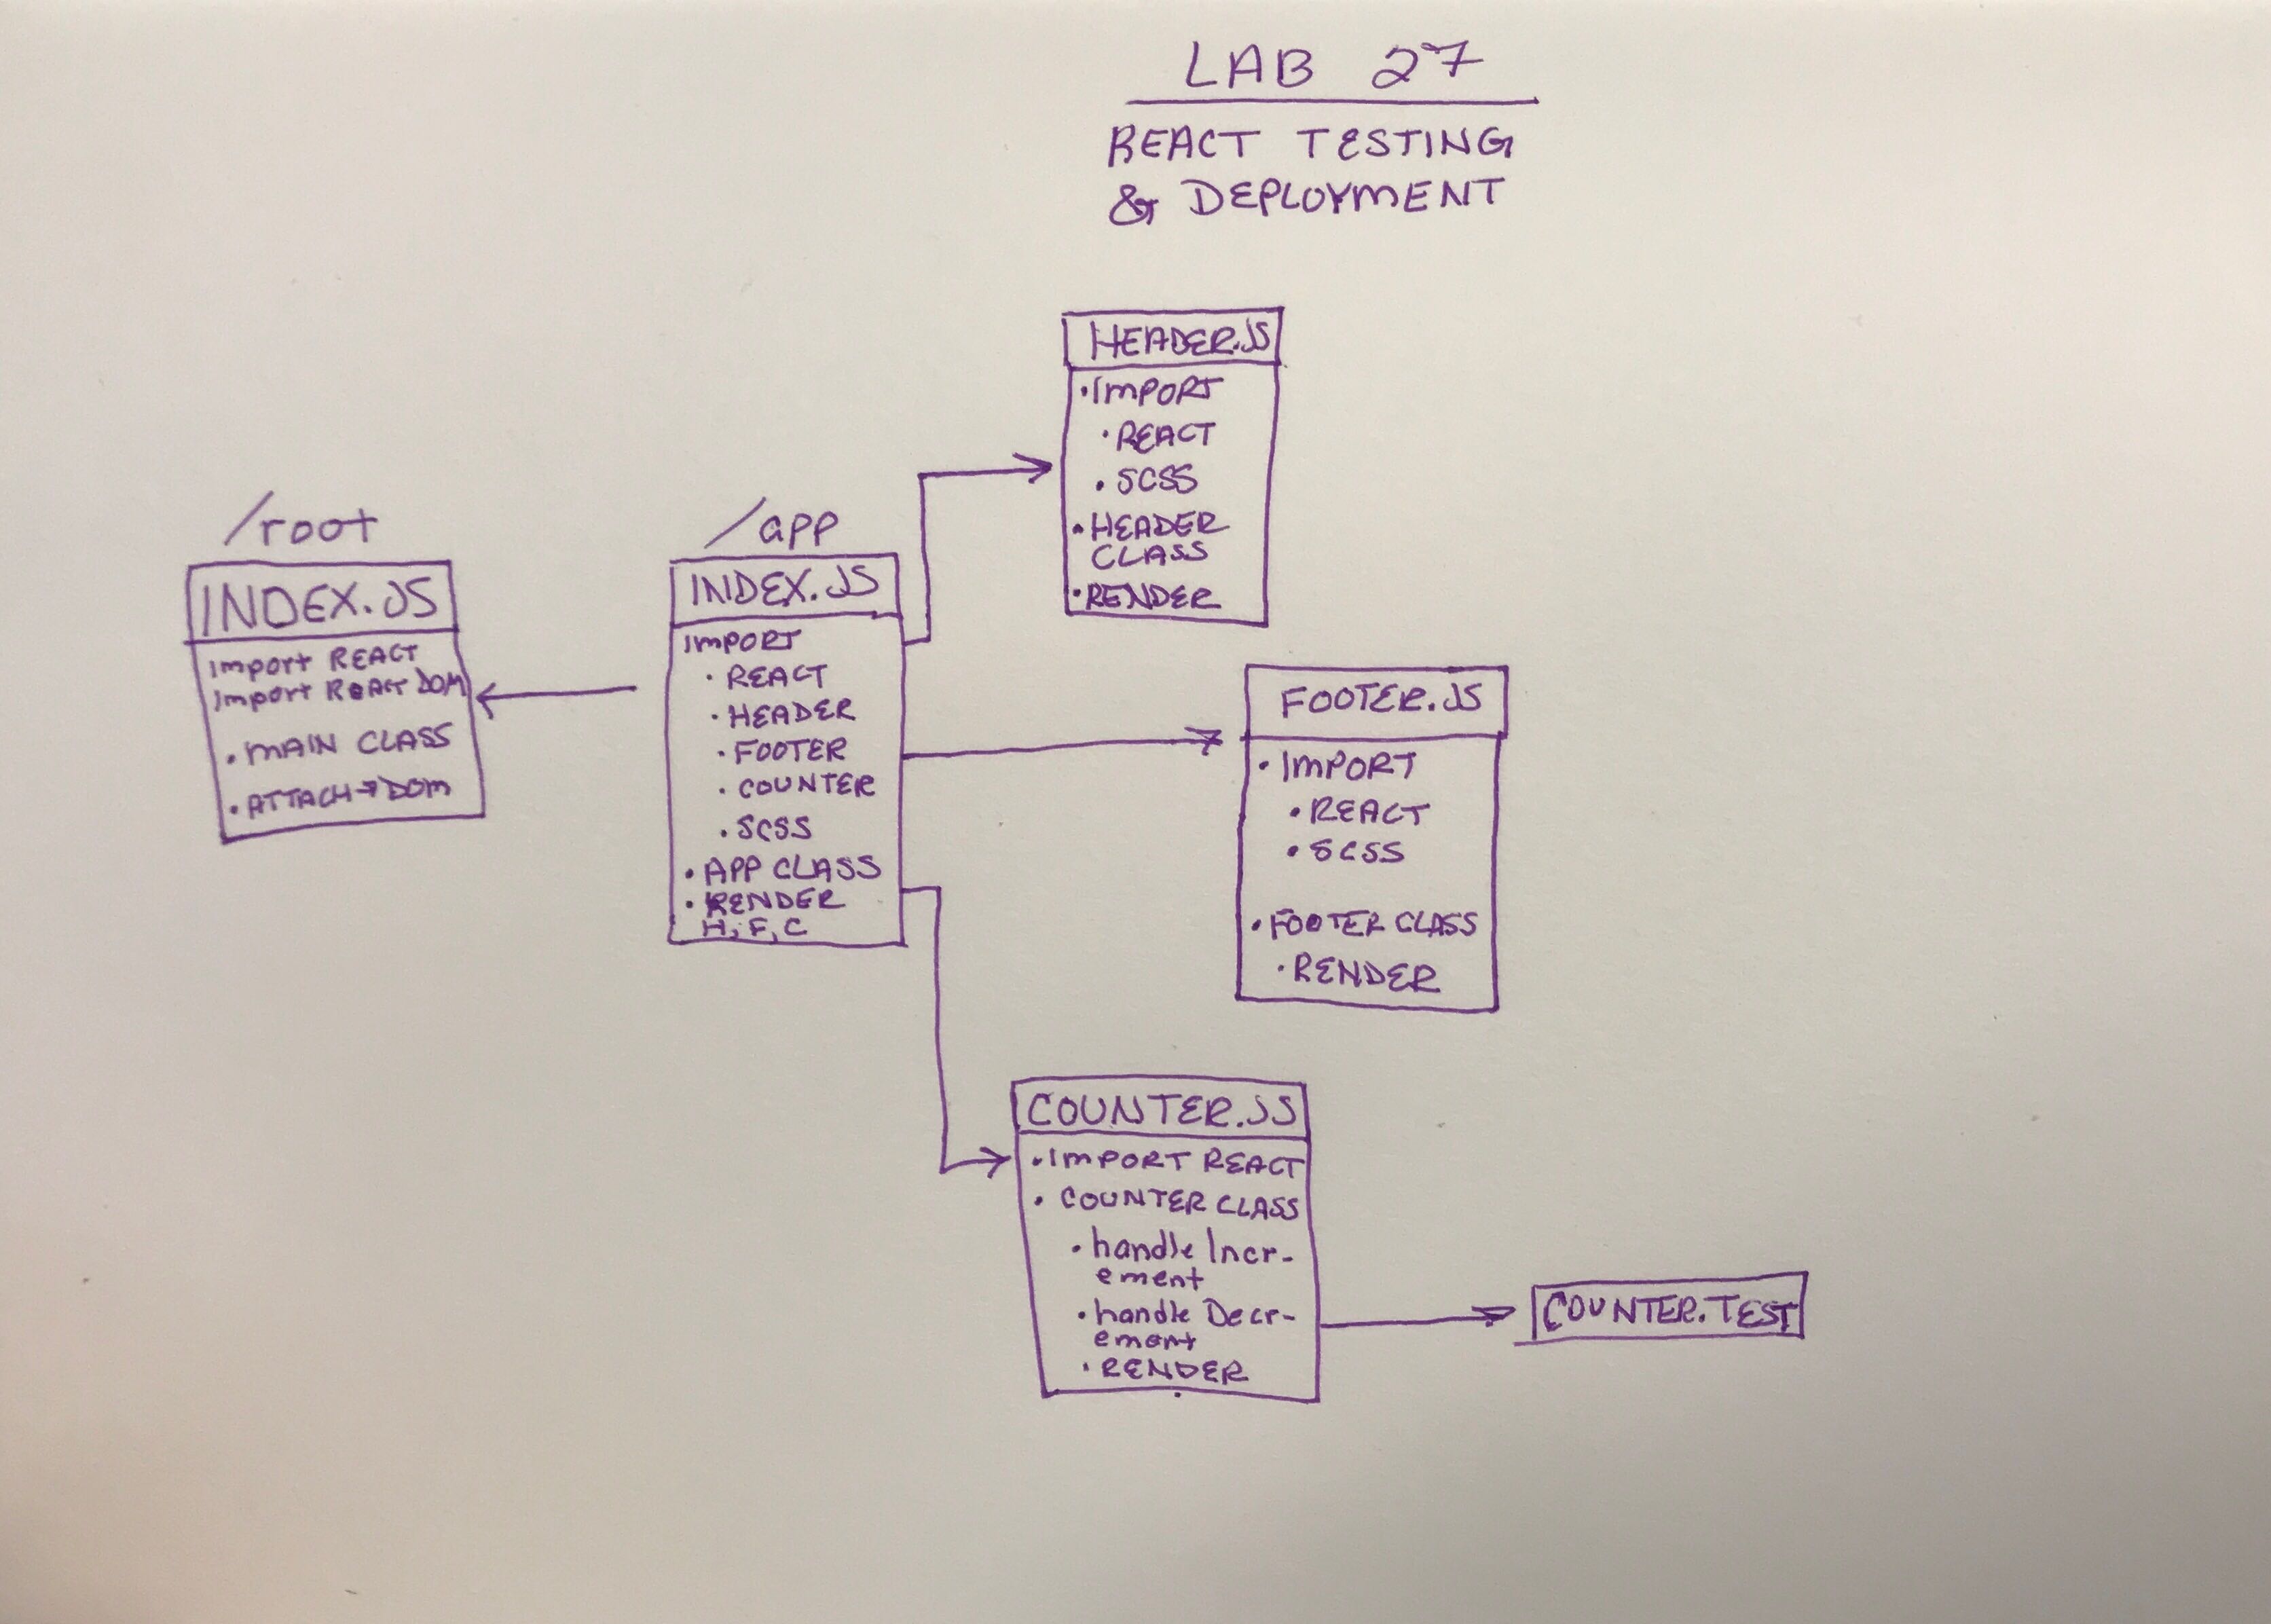 LAB 27
REACT TESTING
& DEPLOYMENT
/root
INDEX.JS
Import REACT
Import REACT DOM
• MAIN CLASS
• ATTACH → DOM
/app
INDEX.JS
IMPORT
• REACT
• HEADER
• FOOTER
• COUNTER
• SCSS
• APP CLASS
• RENDER
H, F, C
HEADER.JS
• IMPORT
• REACT
• SCSS
• HEADER
CLASS
• RENDER
FOOTER.JS
• IMPORT
• REACT
• SCSS
• FOOTER CLASS
• RENDER
COUNTER.JS
• IMPORT REACT
• COUNTER CLASS
• handle Incr-
ement
• handle Decr-
ement
• RENDER
COUNTER.TEST